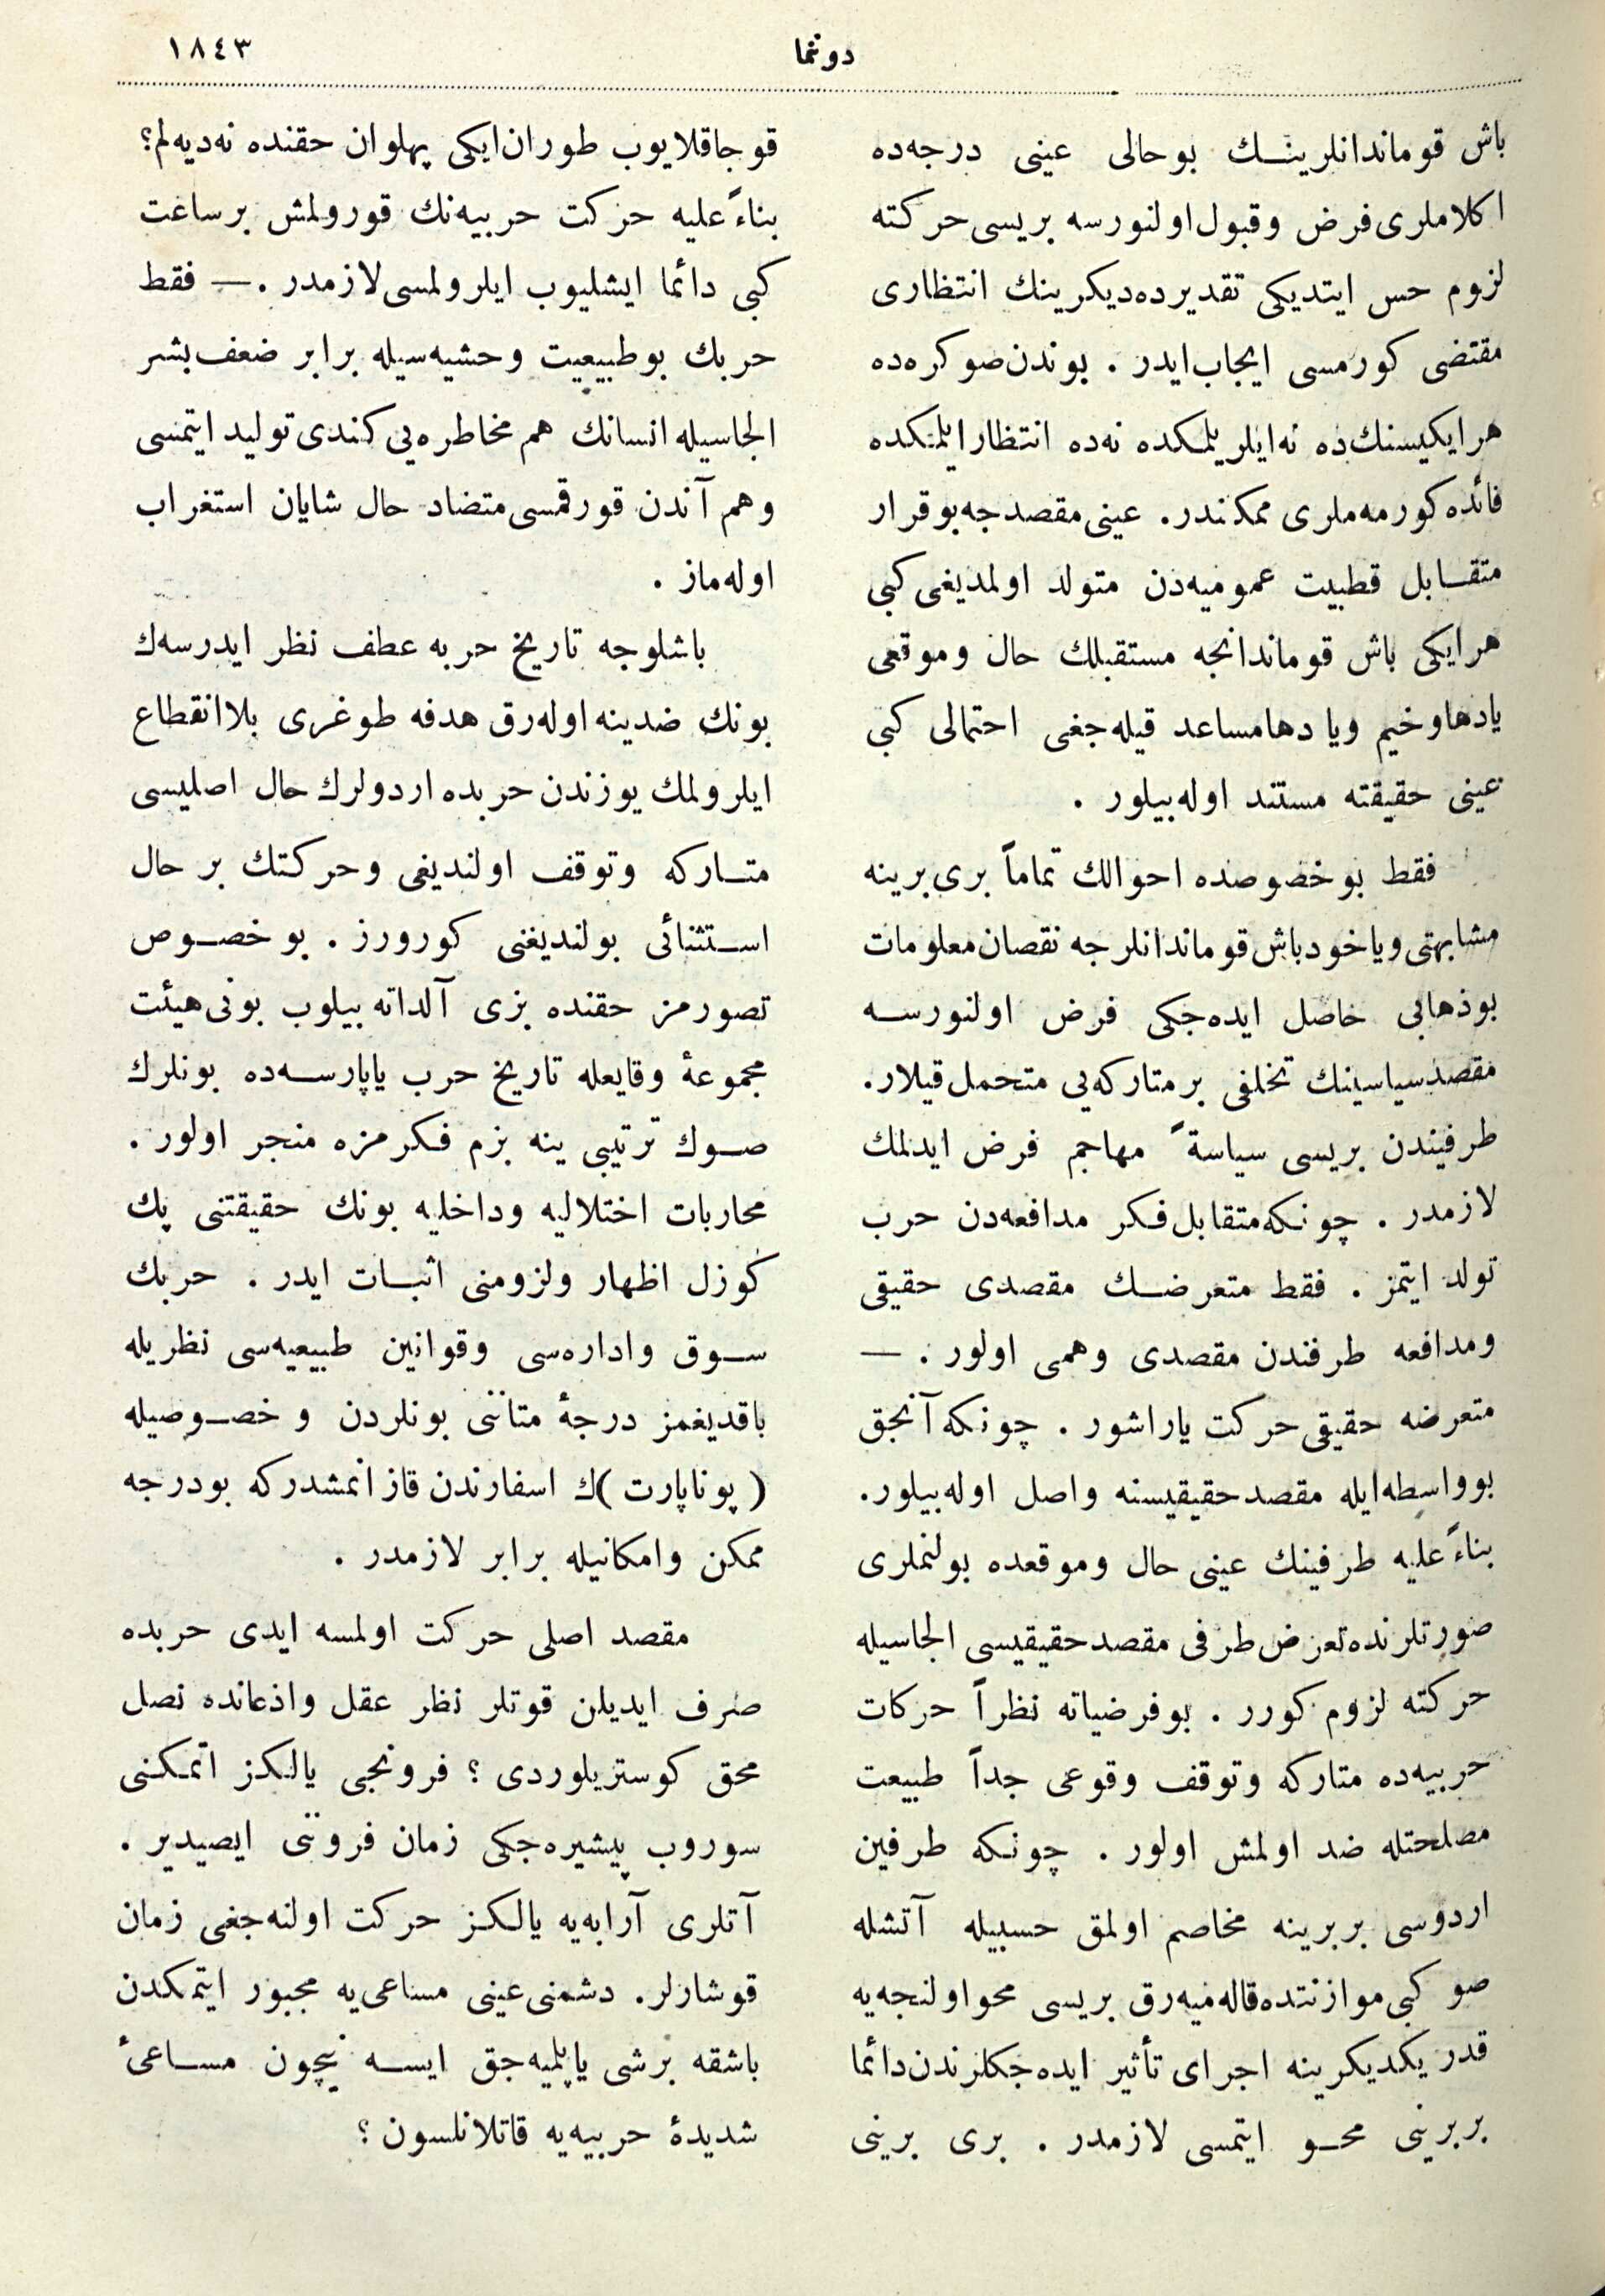 دوننما
١٨٤٣
باش قوماندانلرينك بوحالى عينى درجه‌ده
اكلاملرى فرض وقبول اولنورسه بريسى حركته
لزوم حس ايتديكى تقديرده ديكرينك انتظارى
مقتضى كورمسى ايجاب ايدر . بوندن صوكره‌ده
هر ايكيسنك ده نه ايلريلمكده نه‌ده انتظار ايلمكده
فائده كورمه‌ملرى ممكندر. عينى مقصدجه بو قرار
متقابل قطبيت عموميه‌دن متولد اولمديغى كبى
هر ايكى باش قوماندانجه مستقبلك حال وموقعى
يادها وخيم ويا دها مساعد قيله‌جغى احتمالى كبى
عينى حقيقته مستند اوله‌بيلور .
فقط بو خصوصده احوالك تماماً برى برينه
مشابهتى وياخود باش قوماندانلرجه نقصان معلومات
بوذهابى حاصل ايده‌جكى فرض اولنورسه
مقصد سياسينك تخلفى بر متاركه‌يى متحمل قيلار.
طرفيندن بريسى سياسةً مهاجم فرض ايدلمك
لازمدر . چونكه متقابل فكر مدافعه‌دن حرب
تولد ايتمز . فقط متعرضك مقصدى حقيقى
ومدافعه طرفندن مقصدى وهمى اولور . —
متعرضه حقيقى حركت ياراشور . چونكه آنجق
بو واسطه ايله مقصد حقيقيسنه واصل اوله‌بيلور.
بناءً عليه طرفينك عينى حال وموقعده بولنملرى
صورتلرنده تعرض طرفى مقصد حقيقيسى الجاسيله
حركته لزوم كورر . بو فرضياته نظراً حركات
حربيه‌ده متاركه وتوقف وقوعى جداً طبيعت
مصلحتله ضد اولمش اولور . چونكه طرفين
اردوسى بربرينه مخاصم اولمق حسبيله آتشله
صو كبى موازنتده قاله‌ميه‌رق بريسى محو اولنجه‌يه
قدر يكديكرينه اجراى تأثير ايده‌جكلرندن دائما
بربرينى محو ايتمسى لازمدر . برى برينى
قوجاقلايوب طوران ايكى پهلوان حقنده نه‌ديه‌لم؟
بناءً عليه حركت حربيه‌نك قورولمش برساعت
كبى دائما ايشليوب ايلرولمسى لازمدر . — فقط
حربك بو طبيعيت وحشيه‌سيله برابر ضعف بشر
الجاسيله انسانك هم مخاطره‌يى كندى توليد ايتمسى
وهم آندن قورقمسى متضاد حال شايان استغراب
اوله‌ماز .
باشلوجه تاريخ حربه عطف نظر ايدرسه‌ك
بونك ضدينه اوله‌رق هدفه طوغرى بلاانقطاع
ايلرولمك يوزندن حربده اردولرك حال اصليسى
متاركه وتوقف اولنديغى وحركتك بر حال
استثنائى بولنديغنى كورورز . بو خصوص
تصورمز حقنده بزى آلداته بيلوب بونى هيئت
مجموعهٔ وقايعله تاريخ حرب ياپارسه‌ده بونلرك
صوك ترتيبى ينه بزم فكرمزه منجر اولور .
محاربات اختلاليه وداخليه بونك حقيقتنى پك
كوزل اظهار ولزومنى اثبات ايدر . حربك
سوق واداره‌سى وقوانين طبيعيه‌سى نظريله
باقديغمز درجهٔ متانتى بونلردن و خصوصيله
( پوناپارت )ك اسفارندن قازانمشدركه بو درجه
ممكن وامكانيله برابر لازمدر .
مقصد اصلى حركت اولمسه ايدى حربده
صرف ايديلن قوتلر نظر عقل واذعانده نصل
محق كوستريلوردى ؟ فرونجى يالكز اتمكنى
سوروب پيشيره‌جكى زمان فرونى ايصيدير .
آتلرى آرابه‌يه يالكز حركت اولنه‌جغى زمان
قوشارلر. دشمنى عينى مساعى‌يه مجبور ايتمكدن
باشقه برشى ياپلميه‌جق ايسه نيچون مساعىٔ
شديدهٔ حربيه‌يه قاتلانلسون ؟